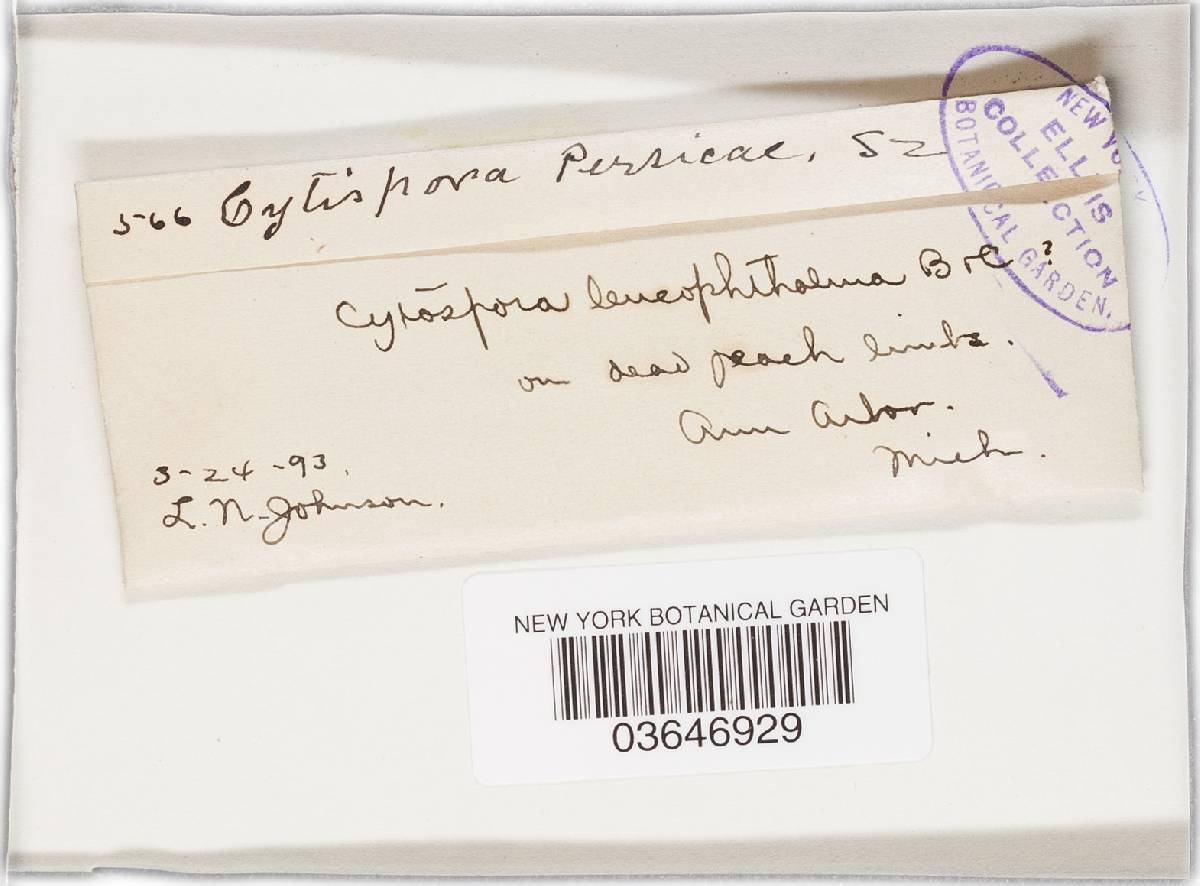 566 Cytispora Persicae, Sz
Cytospora leucophthalma B & C ?
on dead peach limbs.
Ann Arbor.
Mich.
3-24-93.
L. N. Johnson.
NEW YORK
ELLIS
COLLECTION
BOTANICAL GARDEN.
NEW YORK BOTANICAL GARDEN
03646929